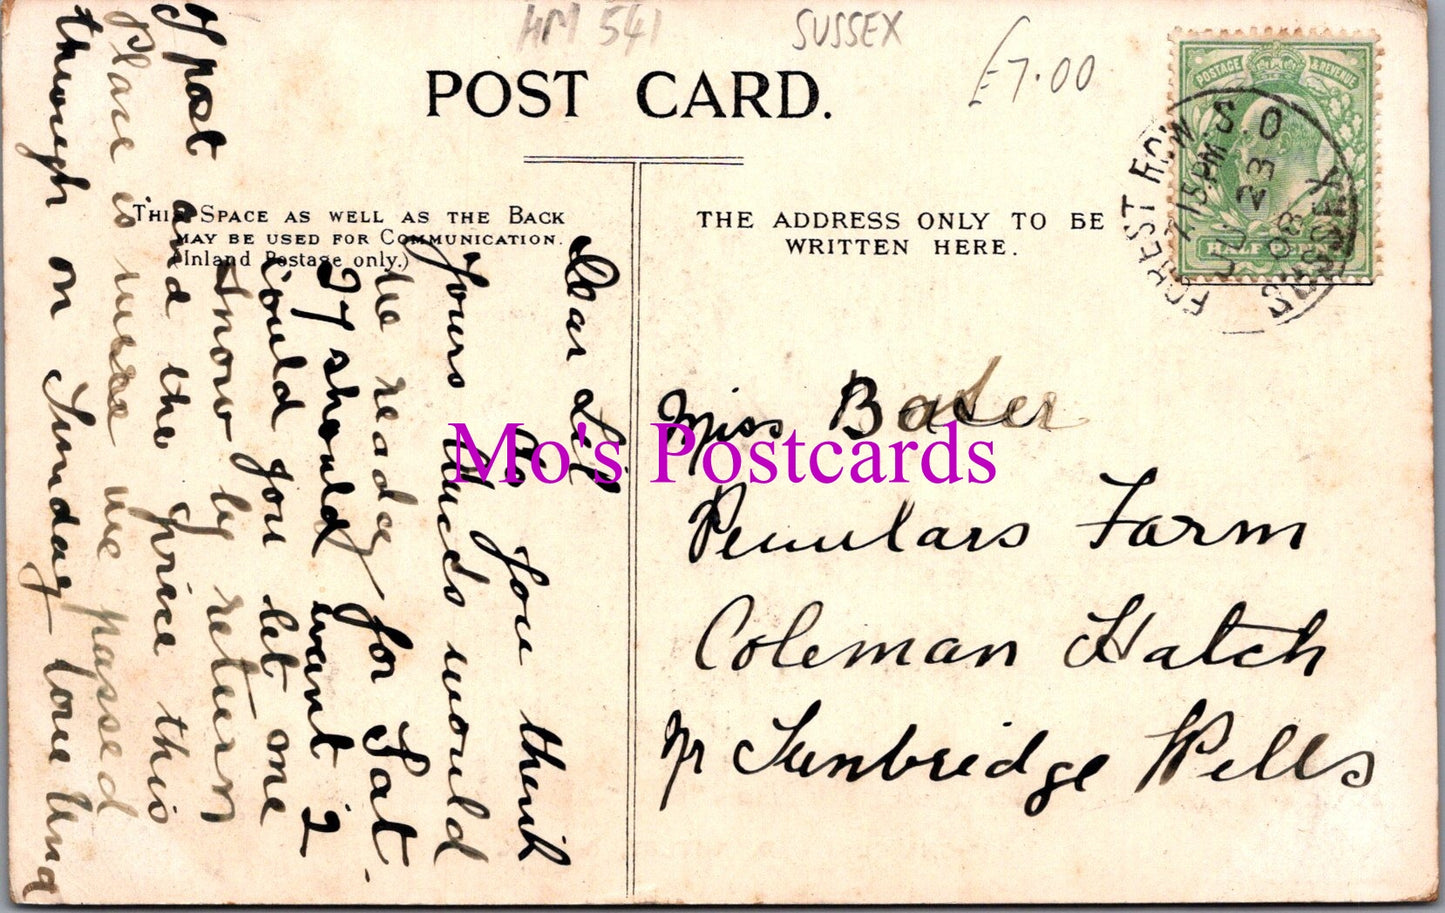 HM 541
SUSSEX
£7.00
POST CARD.
POSTAGE & REVENUE
HALFPENNY
FOREST ROW S.O
7 15 PM
JU 23
08
SUSSEX
THIS SPACE AS WELL AS THE BACK
MAY BE USED FOR COMMUNICATION.
(Inland Postage only.)
THE ADDRESS ONLY TO BE
WRITTEN HERE.
Dear Lil
Do you think
Yours ducks would
be ready for Sat.
If should want 2
could you let me
know by return
I post and the price this
Place is we passed
through on Sunday love Una
Miss Bader
Farm
Coleman Hatch
Nr Tunbridge Wells
Mo's Postcards